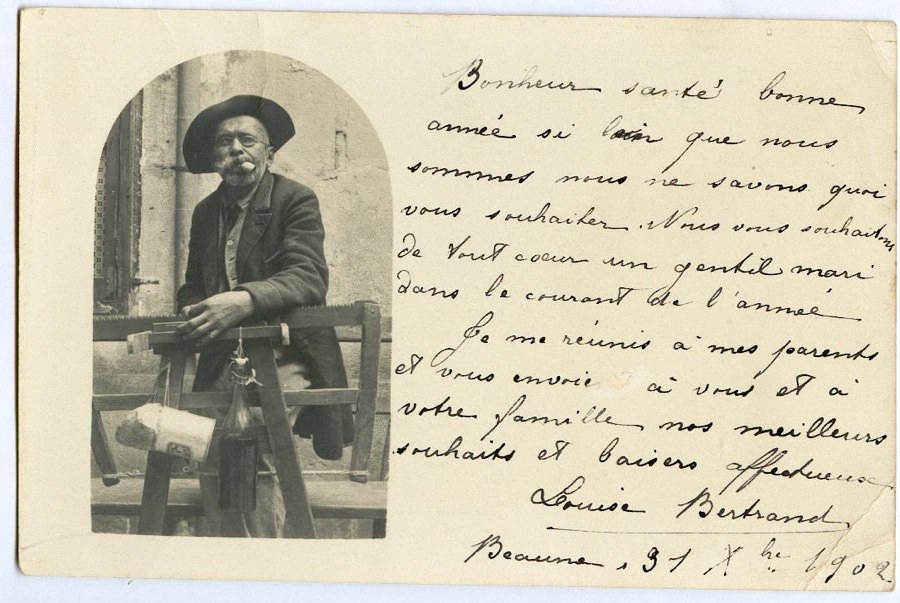 Bonheur santé bonne
année si loin que nous
sommes nous ne savons quoi
vous souhaiter. Nous vous souhaitons
de tout coeur un gentil mari
dans le courant de l'année
Je me réunis à mes parents
et vous envoie à vous et à
votre famille nos meilleurs
souhaits et baisers affectueux
Louise Bertrand
Beaune, 31 Xbre 1902